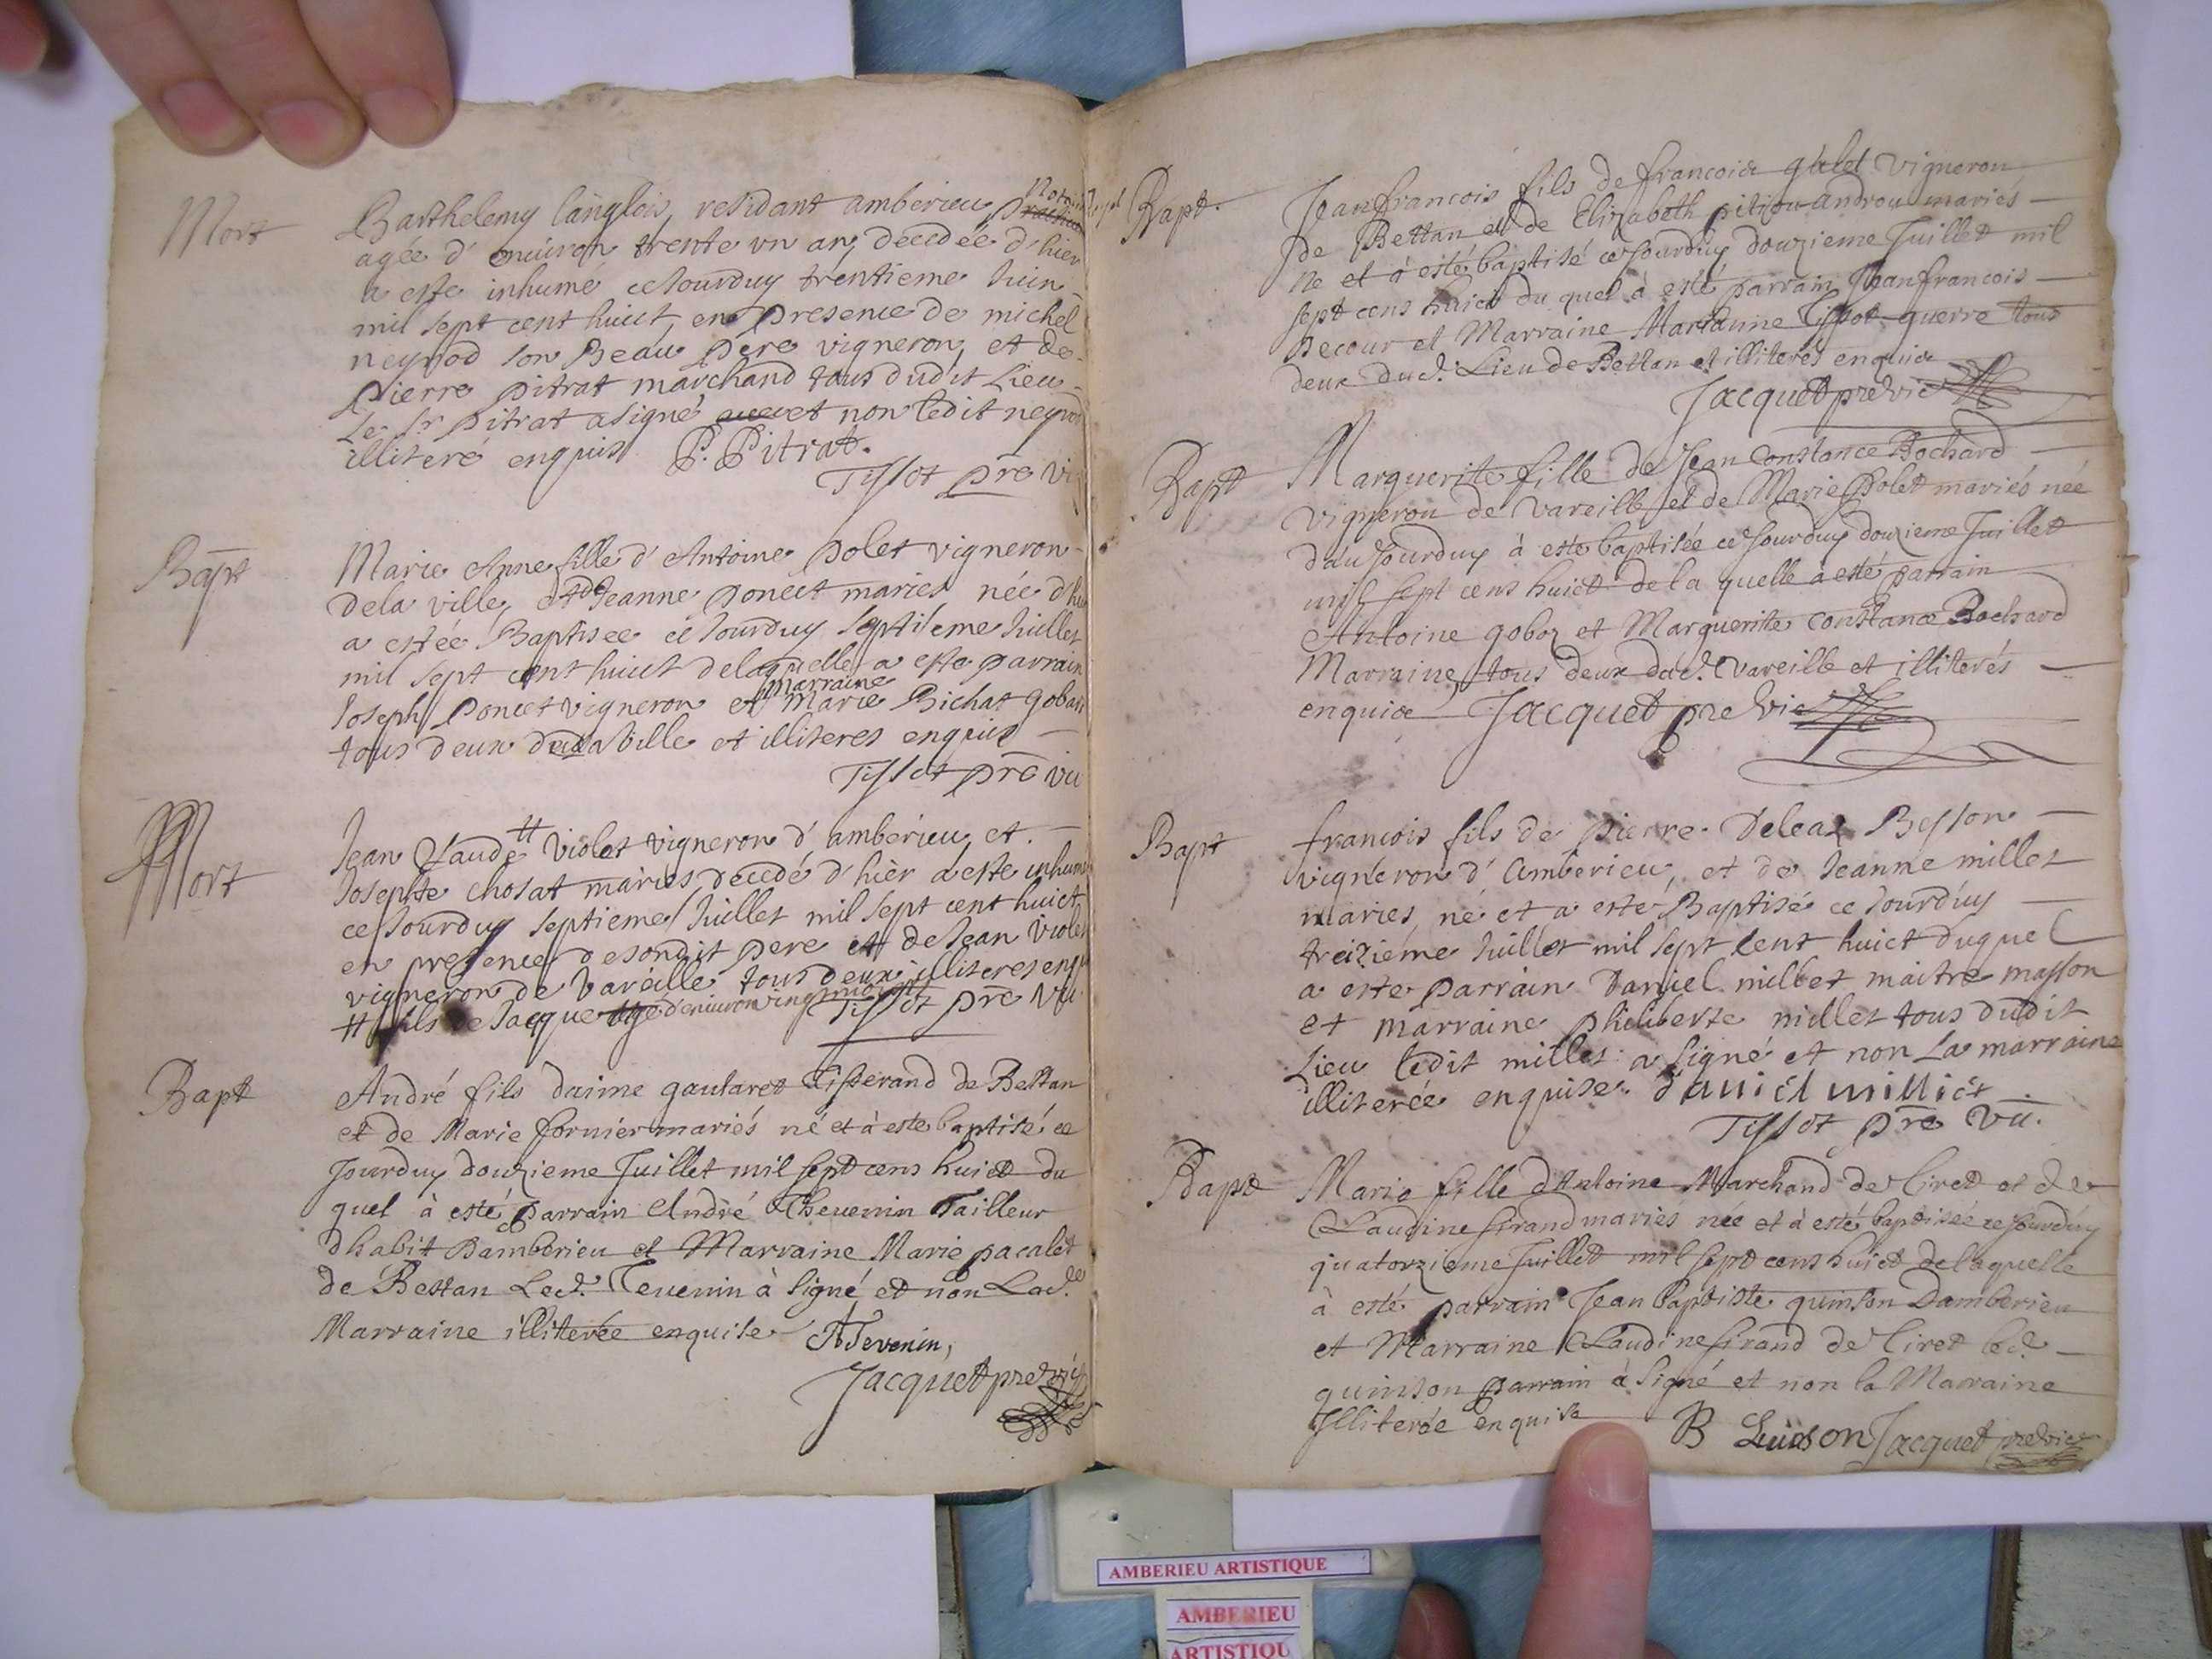 Mort
Barthelemy langlois, residant amberieu
agée d'enuiron trente un an, decedée d'hier
a este inhumé ce Jourduy trentieme Iuin
mil sept cent huict, en presence de michel
neyrod son Beau pere vigneron, et de
pierre pitrat marchand tous dudit Lieu
Le Sr pitrat a signé et non ledit neyrod
illiteré enquis P. Pitrat.
Tissot pre vi
Bapt
Marie Anne fille d'Antoine polet vigneron
dela ville, et de Jeanne poncet mariés née d'hi
a estée Baptisee ce Jourduy septiseme Iuillet
mil sept cent huict delaquelle a este parrain
marraine
Joseph Poncet vigneron et Marie Bichat goban
tous deux dela ville et illiteres enquis
Tissot pre vii
Mort
Jean Claude # violet vigneron d'amberieu et
Josephte chosat maries decedé d'hier a este inhumé
ce Jourduy septieme Iuillet mil sept cent huict
en presence de sondit pere et de Jean violet
vigneron de vareille tous deux illiteres enqu
# fils de Jacque agé d'enuiron
Tissot pre vii.
Bapt
André fils daime gautaret Tisserand de Bettan
et de Marie fornier mariés né et à este baptisé ce
Jourduy douzieme Juillet mil sept cens huict du
quel à esté parrain André Theuenin Tailleur
dhabit Damberieu et Marraine Marie pacalet
de Bettan Led. Teuenin à signé et non Lad.e
Marraine illiterée enquise ATevenin,
Jacquet pre vic
Bapt.
Jean francois fils de francois gulet vigneron
de Bettan et de Elizabeth pitiou androu mariés
né et à esté baptisé ce Jourduy douzieme Juillet mil
sept cens huict du quel à esté parrain Jean francois
Becour et Marraine Marianne Tissot guerre tous
deux dud. Lieu de Bettan et illiterés enquis
Jacquet pre vic
Bapt
Marguerite fille de Jean Constance Bochard
vigneron de vareille et de Marie Polet mariés née
daujourduy à este baptisée ce Jourduy douzieme Juillet
mil sept cens huict de la quelle à esté parrain
Antoine goboz et Marguerite constance Bochard
Marraine tous deux dud. vareille et illiterés
enquis Jacquet pre vic
Bapt
francois fils de pierre Deleaz Besson
vigneron d'amberieu, et de Jeanne millet
maries, né et a este Baptisé ce Jourduy
treizieme Iuillet mil sept cent huict duquel
a este parrain Daniel millet maitre masson
et marraine philiberte millet tous dudit
Lieu ledit millet a signé et non La marraine
illiterée enquise. daniel milliet
Tissot pre vii.
Bapt
Marie fille dAntoine Marchand de tiret et de
Claudine Sirand mariés née et à esté baptisée ce Jourduy
quatorzieme Juillet mil sept cens huict delaquelle
à esté parrain Jean baptiste quinson Damberieu
et Marraine Claudine Sirand de tiret led.
quinson parrain à signé et non la Marraine
Illiterée enquise B Quinson Jacquet pre vic
AMBERIEU ARTISTIQUE
AMBERIEU
ARTISTIQU